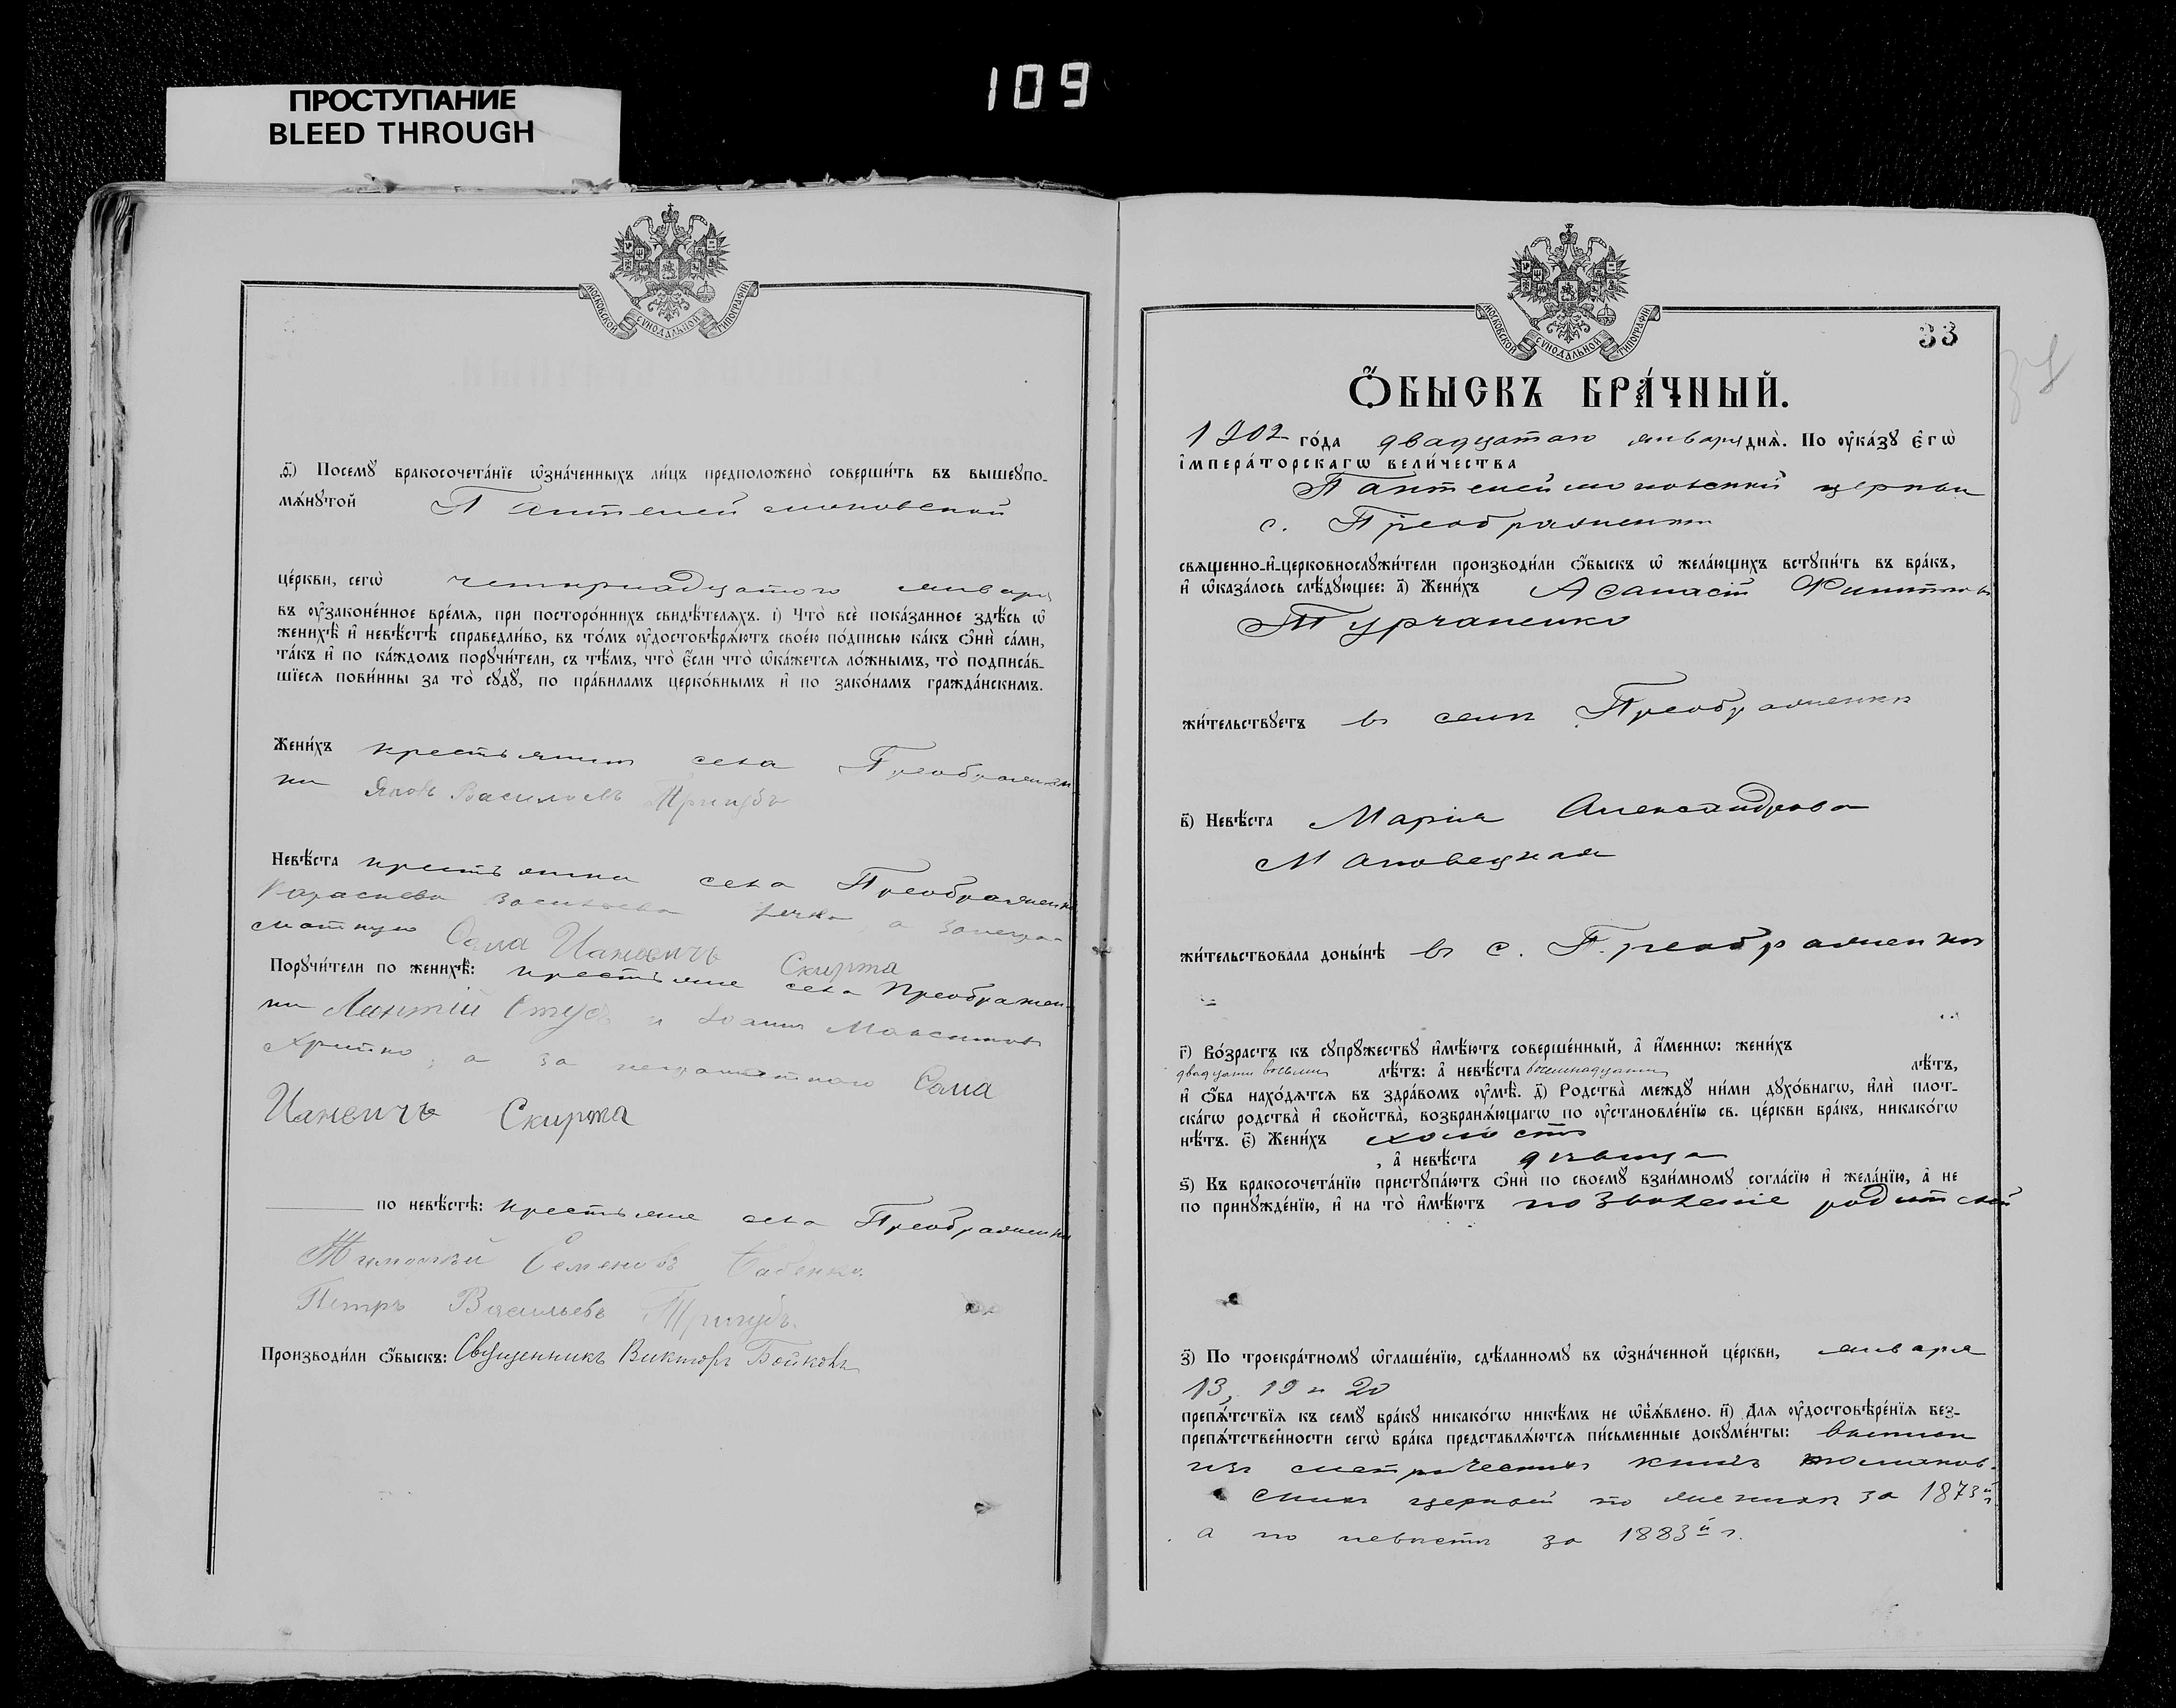 109
ПРОСТУПАНИЕ
BLEED THROUGH
МОСКОВСКОЙ СѴНОДАЛЬНОЙ ТИПОГРАФІИ
ѳ҃) Посемꙋ бракосочета́нїе ѡ҆зна́ченныхъ ли́цъ предположено̀ соверши́ть въ вышеꙋпо-
мѧ́нꙋтой Пантелеймоновской
це́ркви, сегѡ̀ четырнадцатого января
въ ᲂу҆законе́нное вре́мѧ, при посторо́ннихъ свидѣ́телѧхъ. і҃) Что̀ всѐ пока́занное здѣ́сь ѡ҆
женихѣ̀ и҆ невѣ́стѣ справедли́во, въ то́мъ ᲂу҆достовѣрѧ́ютъ свое́ю по́дписью ка́къ ѻ҆нѝ са́ми,
та́къ и҆ по ка́ждомъ порꙋчи́тели, съ тѣ́мъ, что̀ є҆́сли что̀ ѡ҆ка́жетсѧ ло́жнымъ, то̀ подписа́в-
шїесѧ пови́нны за то̀ сꙋдꙋ̀, по пра́виламъ церко́внымъ и҆ по зако́намъ гражда́нскимъ.
Жени́хъ крестьянин села Преображен
ки Яковъ Васильевъ Тригубъ
Невѣ́ста крестьянка села Преображенки
Васильева а за негра
мотную Сава Ивановичъ Скирта
Порꙋчи́тели по женихѣ̀: крестьяне села Преображен
ки Іоаннъ Максимов
а за неграмотного Сава
Ивановичъ Скирта
по невѣ́стѣ: крестьяне села Преображенки
Тимофей Семеновъ Бабенко
Петръ Васильевъ Тригубъ.
Производи́ли ѻ҆́быскъ: Священникъ Викторъ Бойковъ
МОСКОВСКОЙ СѴНОДАЛЬНОЙ ТИПОГРАФІИ
33
Ѻ҆́БЫСКЪ БРА́ЧНЫЙ.
1902 го́да двадцатого января днѧ̀. По ᲂу҆ка́зꙋ є҆гѡ̀
і҆мпера́торскагѡ вели́чества
Пантелеймоновской церкви
с. Преображенки
свѧщенно-и҆-церковнослꙋжи́тели производи́ли ѻ҆́быскъ ѡ҆ жела́ющихъ встꙋпи́ть въ бра́къ,
и҆ ѡ҆каза́лось слѣ́дꙋющее: а҃) Жени́хъ Афанасій
Турчаненко
жи́тельствꙋетъ въ селѣ Преображенкѣ
в҃) Невѣ́ста Марія Александрова
Маковецкая
жи́тельствовала доны́нѣ въ с. Преображенкѣ
г҃) Во́зрастъ къ сꙋпрꙋ́жествꙋ и҆мѣ́ютъ соверше́нный, а҆ и҆́меннѡ: жени́хъ
двадцати восьми лѣ́тъ: а҆ невѣ́ста восемнадцати лѣ́тъ,
и҆ ѻ҆́ба нахо́дѧтсѧ въ здра́вомъ ᲂу҆мѣ̀. д҃) Родства̀ междꙋ̀ ни́ми дꙋхо́внагѡ, и҆лѝ плот-
ска́гѡ родства̀ и҆ свойства̀, возбранѧ́ющагѡ по ᲂу҆становле́нїю св. це́ркви бра́къ, никако́гѡ
нѣ́тъ. є҃) Жени́хъ холостъ
, а҆ невѣ́ста дѣвица
ѕ҃) Къ бракосочета́нїю пристꙋпа́ютъ ѻ҆нѝ по своемꙋ̀ взаи́мномꙋ согла́сїю и҆ жела́нїю, а҆ не
по принꙋжде́нїю, и҆ на то̀ и҆мѣ́ютъ позволеніе родителей
з҃) По троекра́тномꙋ ѡ҆глаше́нїю, сдѣ́ланномꙋ въ ѡ҆зна́ченной це́ркви, января
13, 19 и 20
препѧ́тствїѧ къ семꙋ̀ бра́кꙋ никако́гѡ никѣ́мъ не ѡ҆бъѧ́влено. и҃) Длѧ ᲂу҆достовѣре́нїѧ без-
препѧ́тственности сегѡ̀ бра́ка представлѧ́ютсѧ пи́сьменные докꙋме́нты: выписи
изъ метрическихъ книгъ
церквей по женихѣ за 1873й г.
а по невѣстѣ за 1883й г.